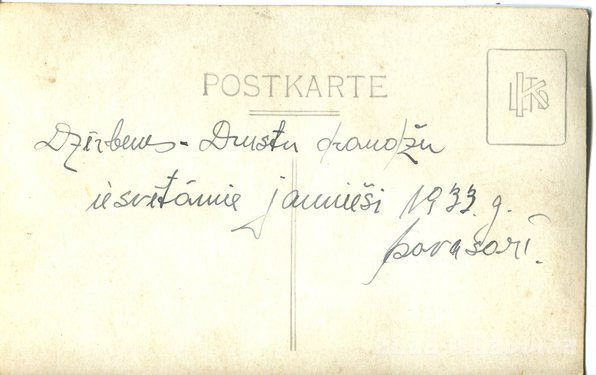 POSTKARTE
Dzērbenes - Drustu draudžu
iesvētāmie jaunieši 1933. g.
pavasarī.